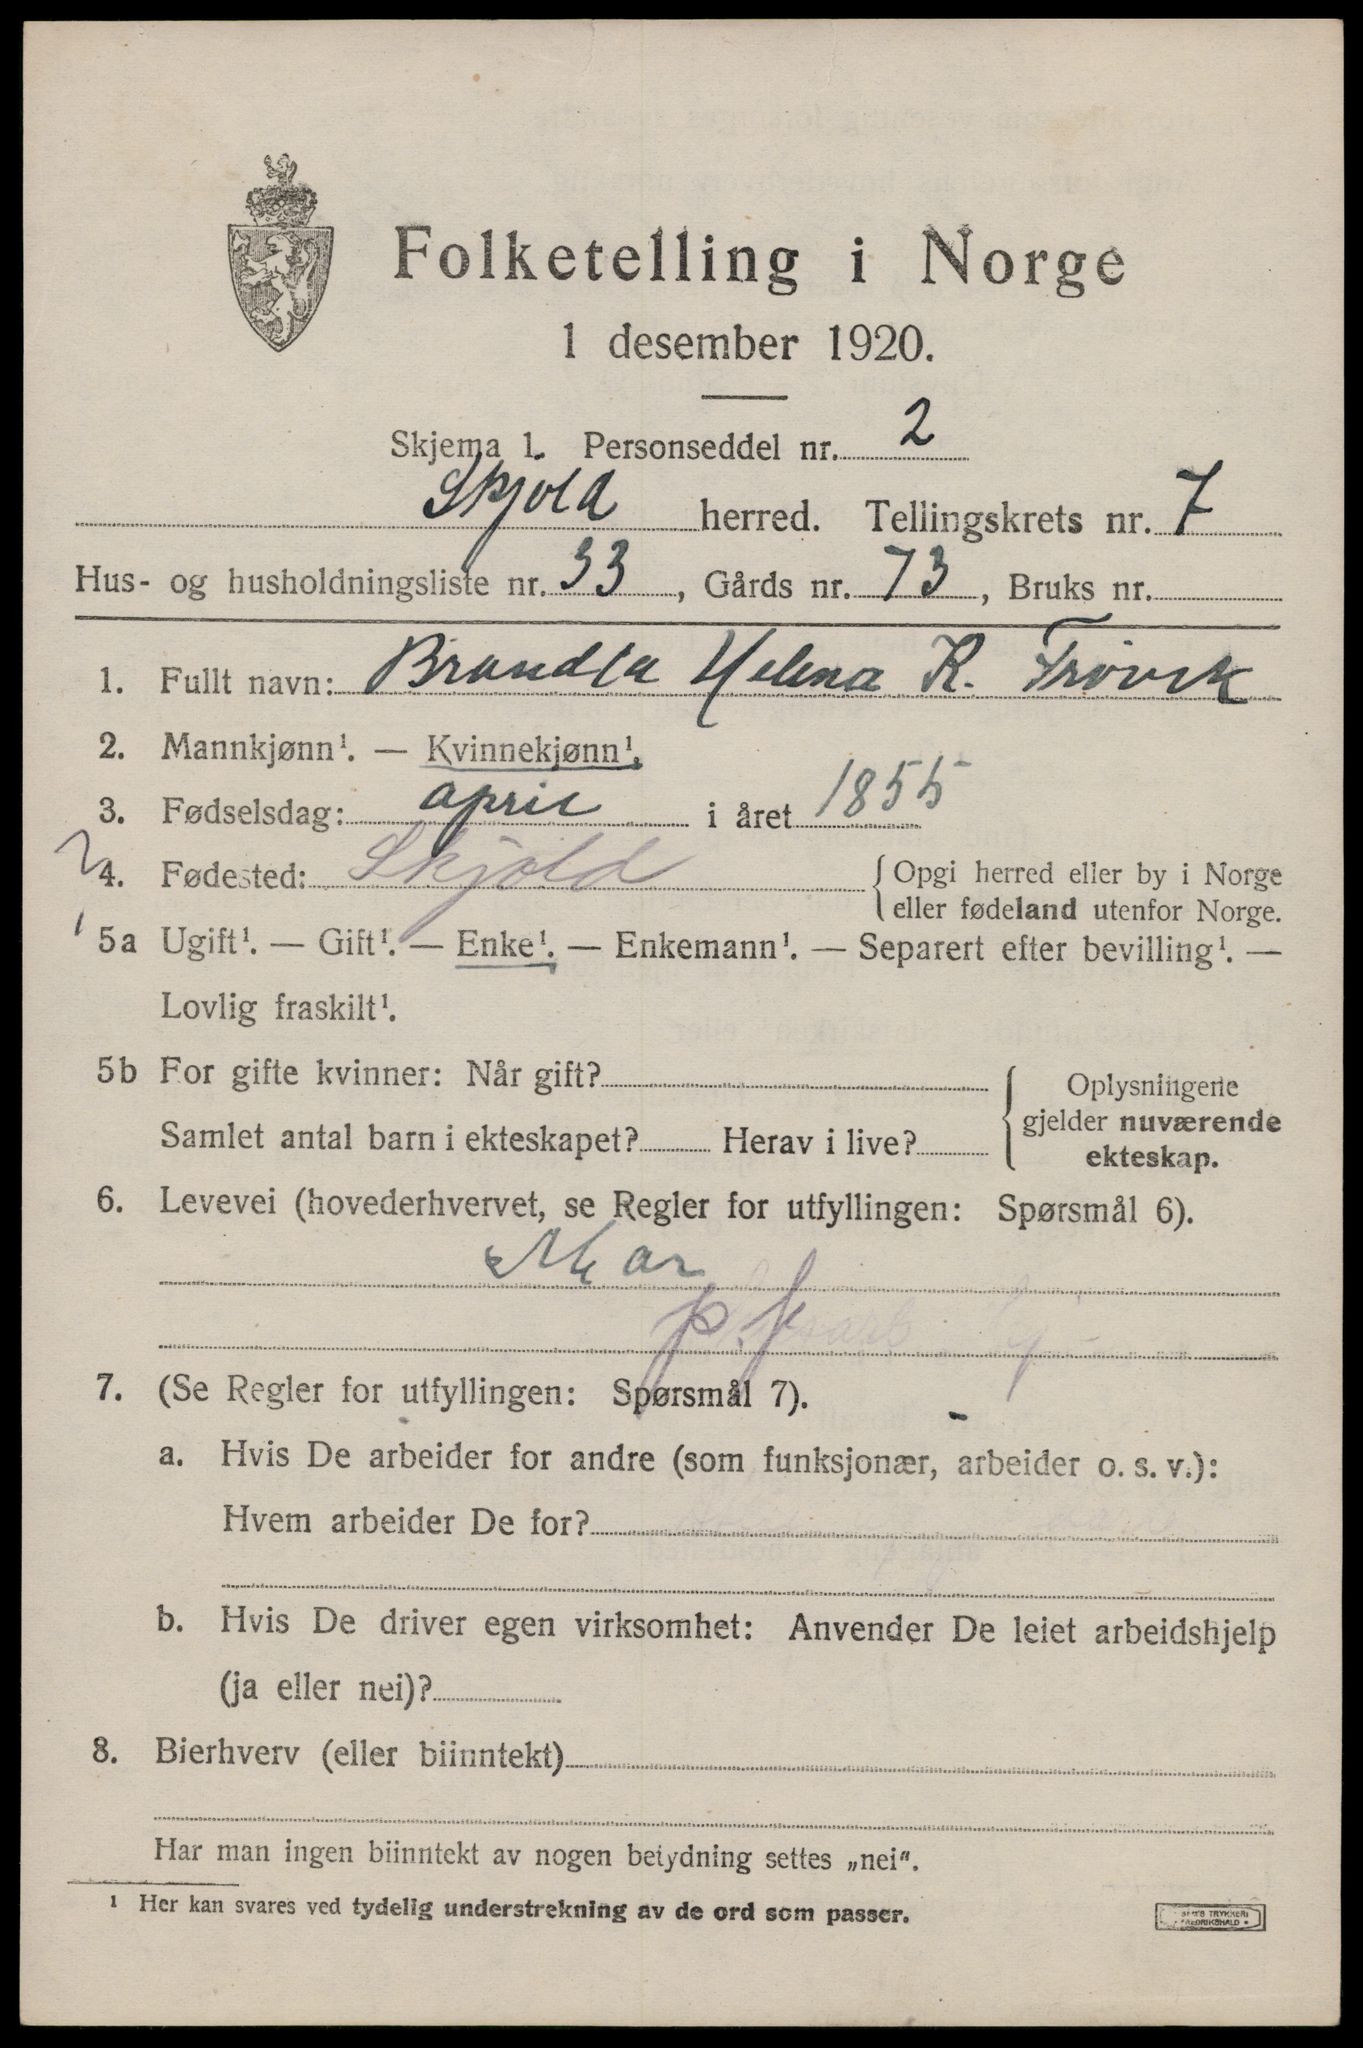 Folketelling i Norge
1 desember 1920.
Skjema 1. Personseddel nr. 2
Skjold herred. Tellingskrets nr. 7
Hus- og husholdningsliste nr. 33, Gårds nr. 73, Bruks nr.
1. Fullt navn: Brundla Helena K. Frøvik
2. Mannkjønn¹. — Kvinnekjønn¹.
3. Fødselsdag: april i året 1855
4. Fødested: Skjold { Opgi herred eller by i Norge
eller fødeland utenfor Norge.
5a Ugift¹. — Gift¹. — Enke¹. — Enkemann¹. — Separert efter bevilling¹. —
Lovlig fraskilt¹.
5b For gifte kvinner: Når gift? { Oplysningene
gjelder nuværende
Samlet antal barn i ekteskapet? Herav i live?
ekteskap.
6. Levevei (hovederhvervet, se Regler for utfyllingen: Spørsmål 6).
7. (Se Regler for utfyllingen: Spørsmål 7).
a. Hvis De arbeider for andre (som funksjonær, arbeider o. s. v.):
Hvem arbeider De for?
b. Hvis De driver egen virksomhet: Anvender De leiet arbeidshjelp
(ja eller nei)?
8. Bierhverv (eller biinntekt)
Har man ingen biinntekt av nogen betydning settes „nei".
¹ Her kan svares ved tydelig understrekning av de ord som passer.